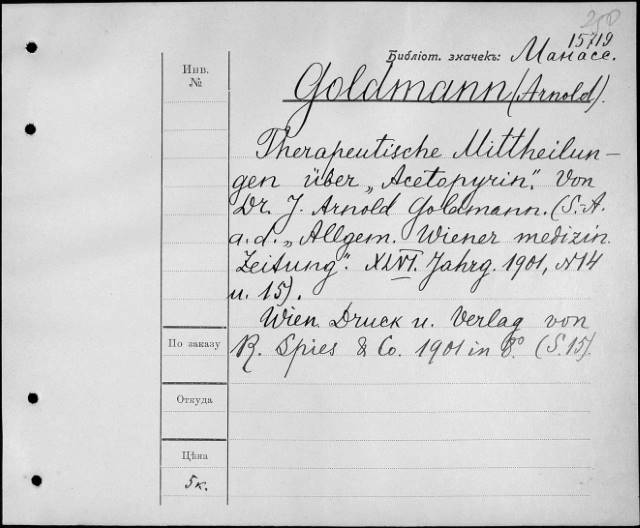 250
15719
Библіот. значекъ: Манасе.
Инв.
№
Goldmann (Arnold).
Therapeutische Mittheilun-
gen über „Acetopyrin“. Von
Dr. J. Arnold Goldmann. (S.-A.
a. d. „Allgem. Wiener medizin.
Zeitung“. XLVI. Jahrg. 1901, N14
u. 15).
Wien. Druck u. Verlag von
По заказу
R. Spies & Co. 1901 in 8.° (S. 15).
Откуда
Цѣна
5к.